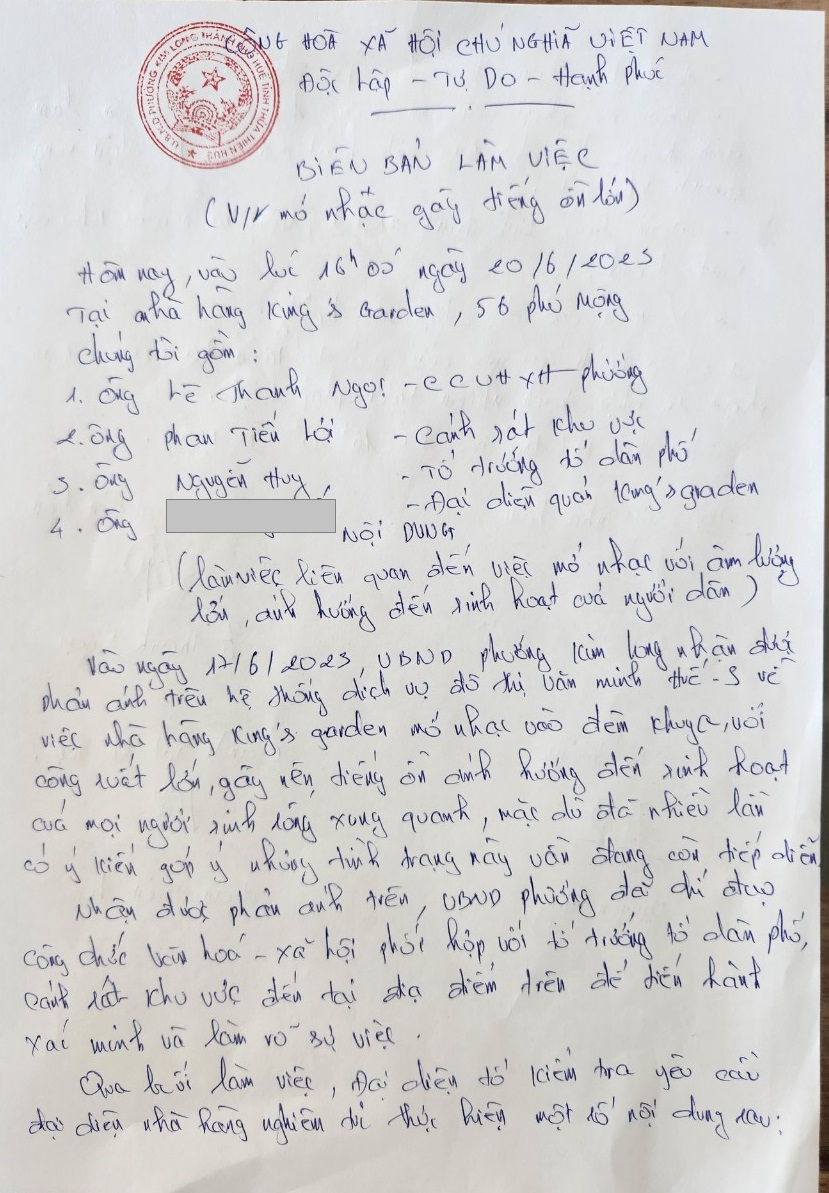 CỘNG HOÀ XÃ HỘI CHỦ NGHĨA VIỆT NAM
Độc Lập - Tự Do - Hạnh phúc
U.B.N.D PHƯỜNG KIM LONG THÀNH PHỐ HUẾ TỈNH THỪA THIÊN HUẾ
BIÊN BẢN LÀM VIỆC
(V/v mở nhạc gây tiếng ồn lớn)
Hôm nay, vào lúc 16h00 ngày 20/6/2023
Tại nhà hàng King's Garden, 56 phú Mộng
chúng tôi gồm:
1. Ông Lê Thanh Ngọ! - CCVHXH phường
2. Ông Phan Tiến Lợi - Cảnh sát khu vực
3. Ông Nguyễn Huy - Tổ trưởng tổ dân phố
4. Ông - Đại diện quán King's graden
NỘI DUNG
(Làm việc liên quan đến việc mở nhạc với âm lượng
lớn, ảnh hưởng đến sinh hoạt của người dân)
Vào ngày 17/6/2023, UBND phường Kim Long nhận được
phản ánh trên hệ thống dịch vụ đô thị văn minh Huế-S về
việc nhà hàng King's garden mở nhạc vào đêm khuya, với
công suất lớn, gây nên tiếng ồn ảnh hưởng đến sinh hoạt
của mọi người sinh sống xung quanh, mặc dù đã nhiều lần
có ý kiến góp ý nhưng tình trạng này vẫn đang còn tiếp diễn.
Nhận được phản ánh trên, UBND phường đã chỉ đạo
công chức văn hoá - xã hội phối hợp với tổ trưởng tổ dân phố,
cảnh sát khu vực đến tại địa điểm trên để tiến hành
xác minh và làm rõ sự việc.
Qua buổi làm việc, Đại diện tổ kiểm tra yêu cầu
đại diện nhà hàng nghiêm túc thực hiện một số nội dung sau: